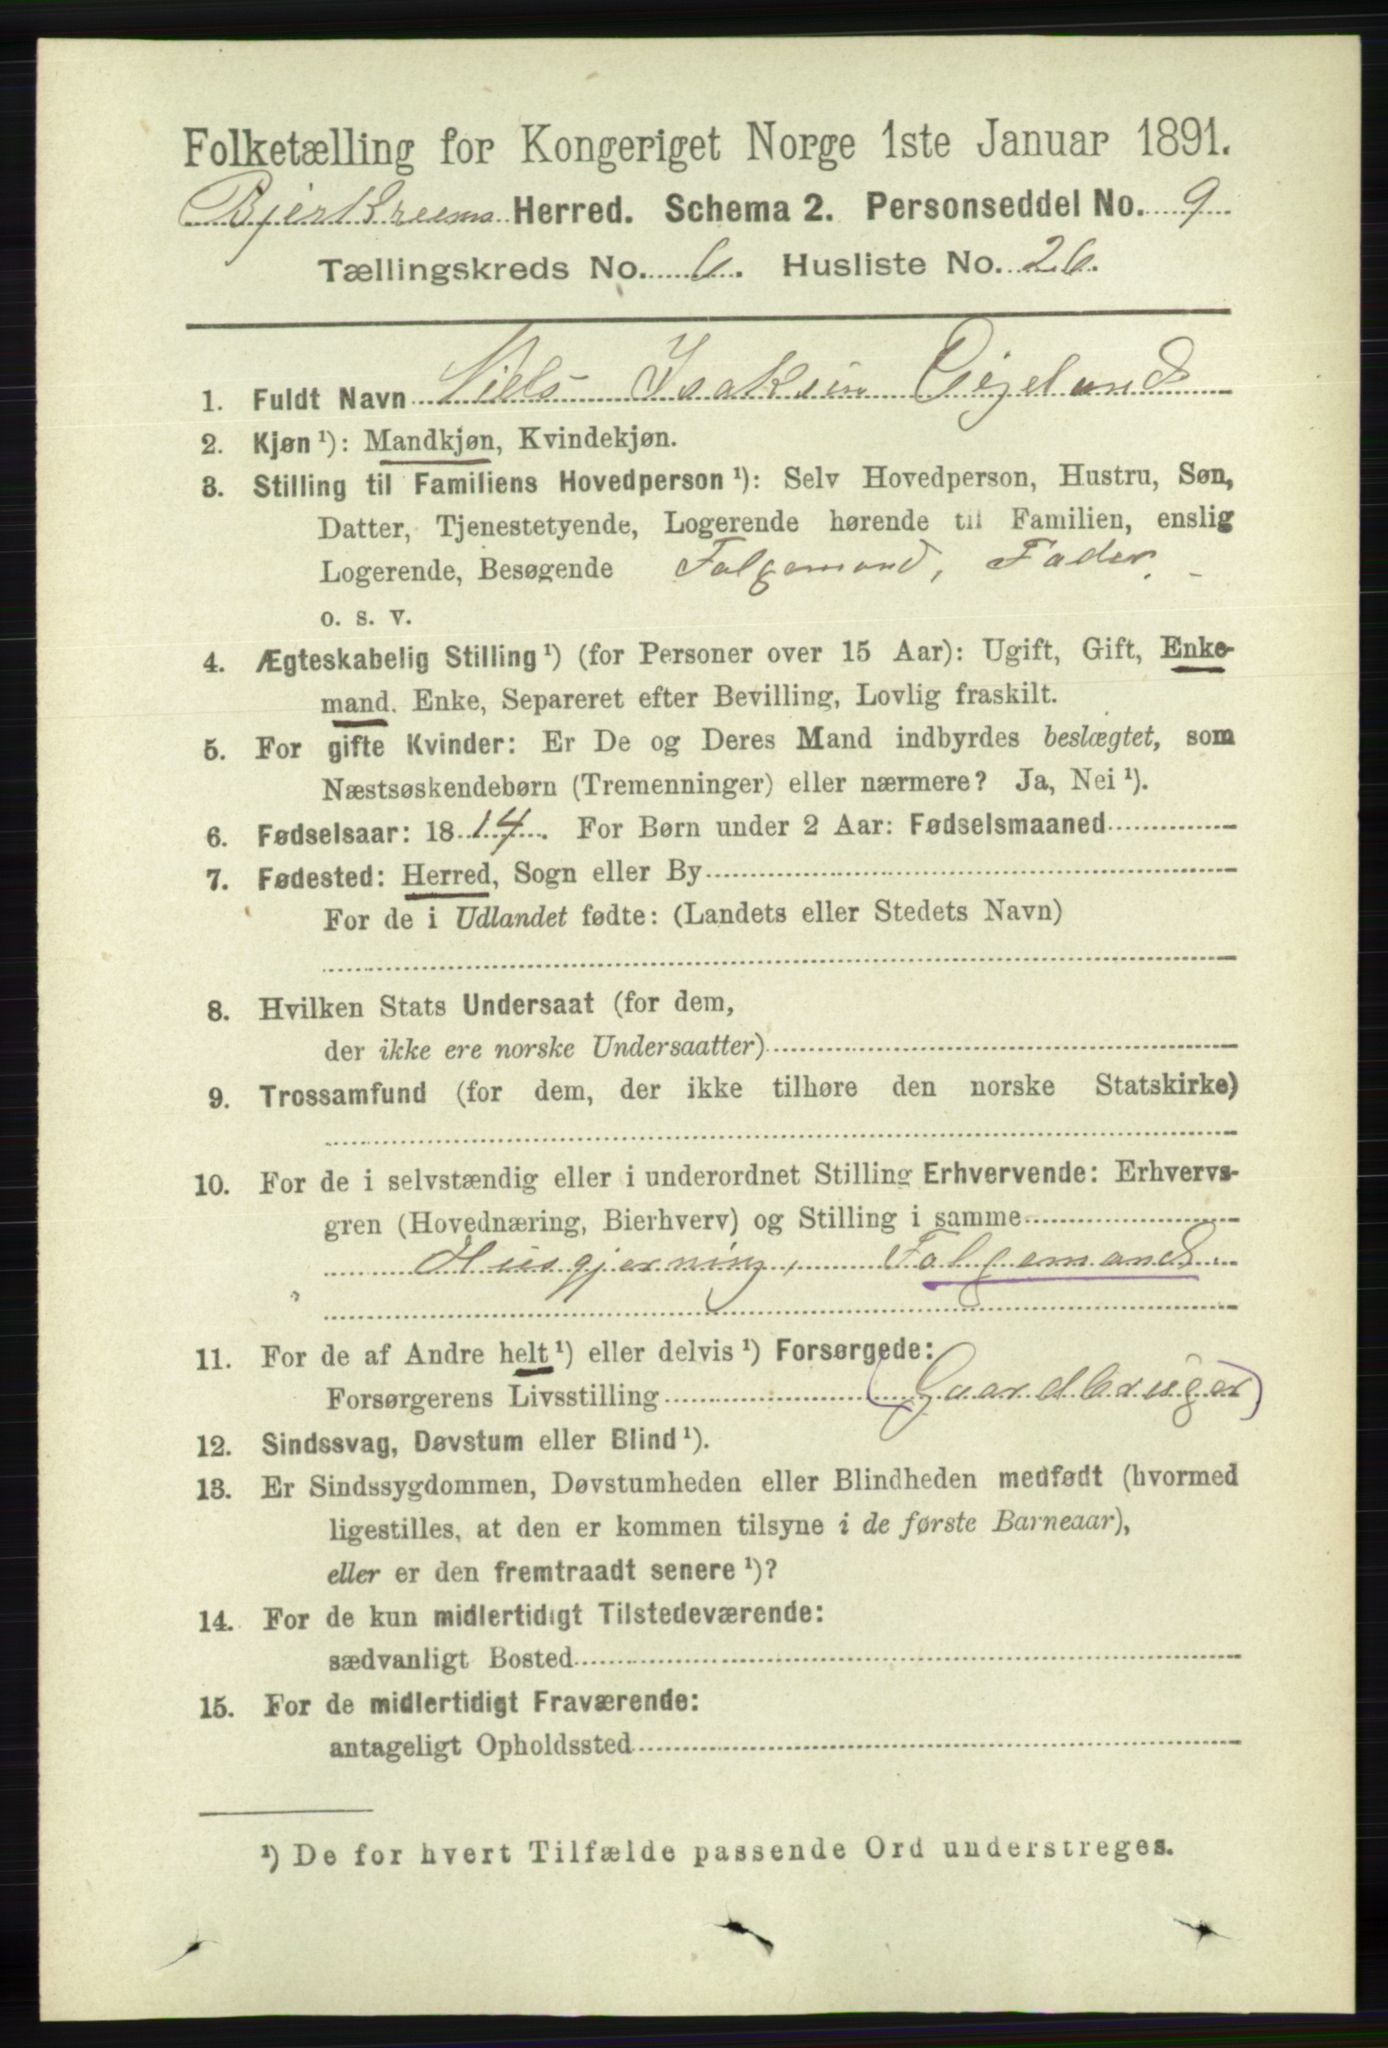 Folketælling for Kongeriget Norge 1ste Januar 1891.
Bjerkreims Herred. Schema 2. Personseddel No. 9
Tællingskreds No. 6. Husliste No. 26.
1. Fuldt Navn Niels Isaksen
2. Kjøn ¹): Mandkjøn, Kvindekjøn.
3. Stilling til Familiens Hovedperson ¹): Selv Hovedperson, Hustru, Søn,
Datter, Tjenestetyende, Logerende hørende til Familien, enslig
Logerende, Besøgende Folgemand, Fader.
o. s. v.
4. Ægteskabelig Stilling ¹) (for Personer over 15 Aar): Ugift, Gift, Enke-
mand. Enke, Separeret efter Bevilling, Lovlig fraskilt.
5. For gifte Kvinder: Er De og Deres Mand indbyrdes beslægtet, som
Næstsøskendebørn (Tremenninger) eller nærmere? Ja, Nei ¹).
6. Fødselsaar: 1814. For Børn under 2 Aar: Fødselsmaaned
7. Fødested: Herred, Sogn eller By
For de i Udlandet fødte: (Landets eller Stedets Navn)
8. Hvilken Stats Undersaat (for dem,
der ikke ere norske Undersaatter)
9. Trossamfund (for dem, der ikke tilhøre den norske Statskirke)
10. For de i selvstændig eller i underordnet Stilling Erhvervende: Erhvervs-
gren (Hovednæring, Bierhverv) og Stilling i samme
Husgjerning, Folgemand.
11. For de af Andre helt ¹) eller delvis ¹) Forsørgede:
Forsørgerens Livsstilling (Gaardbruger)
12. Sindssvag, Døvstum eller Blind ¹).
13. Er Sindssygdommen, Døvstumheden eller Blindheden medfødt (hvormed
ligestilles, at den er kommen tilsyne i de første Barneaar),
eller er den fremtraadt senere ¹)?
14. For de kun midlertidigt Tilstedeværende:
sædvanligt Bosted
15. For de midlertidigt Fraværende:
antageligt Opholdssted
¹) De for hvert Tilfælde passende Ord understreges.